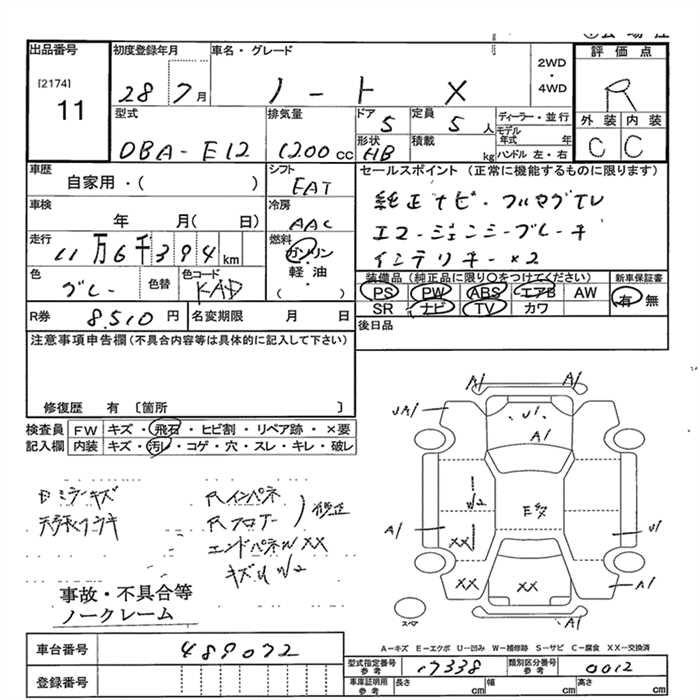 出品番号
[2174]
11
初度登録年月
28 7月
車名・グレード
ノート X
2WD
・
4WD
評価点
R
外装 内装
C C
型式
DBA-E12
排気量
1200cc
ドア
5
定員
5人
形状
HB
積載
kg
ディーラー・並行
モデル年式 年
ハンドル 左・右
車歴
自家用・( )
シフト
FAT
セールスポイント (正常に機能するものに限ります)
純正ナビ・フルセグTV
エマージェンシーブレーキ
インテリキー×2
車検
年 月( 日)
冷房
AAC
走行
11万6千394km
燃料
ガソリン
軽油・
( )
色
グレー
色替
色コード
KAD
装備品(純正品に限り○をつけてください)
PS PW ABS エアB AW
SR ナビ TV カワ
新車保証書
有 無
R券 8,510円
名変期限 月 日
後日品
注意事項申告欄(不具合内容等は具体的に記入して下さい)
修復歴 有〔箇所 〕
検査員記入欄
FW キズ・飛石・ヒビ割・リペア跡・×要
内装 キズ・汚レ・コゲ・穴・スレ・キレ・破レ
Rインパネ
Rフロアー
エンドパネル XX
事故・不具合等
ノークレーム
A1 A1
UA1
U1
A1
U2
A1
XX
U1
A1
XX
XX
スペア
A-キズ E-エクボ U-凹み W-補修跡 S-サビ C-腐食 XX-交換済
車台番号 489072
登録番号
型式指定番号 参考 17338
類別区分番号 参考 0012
車庫証明用 参考 長さ cm 幅 cm 高さ cm